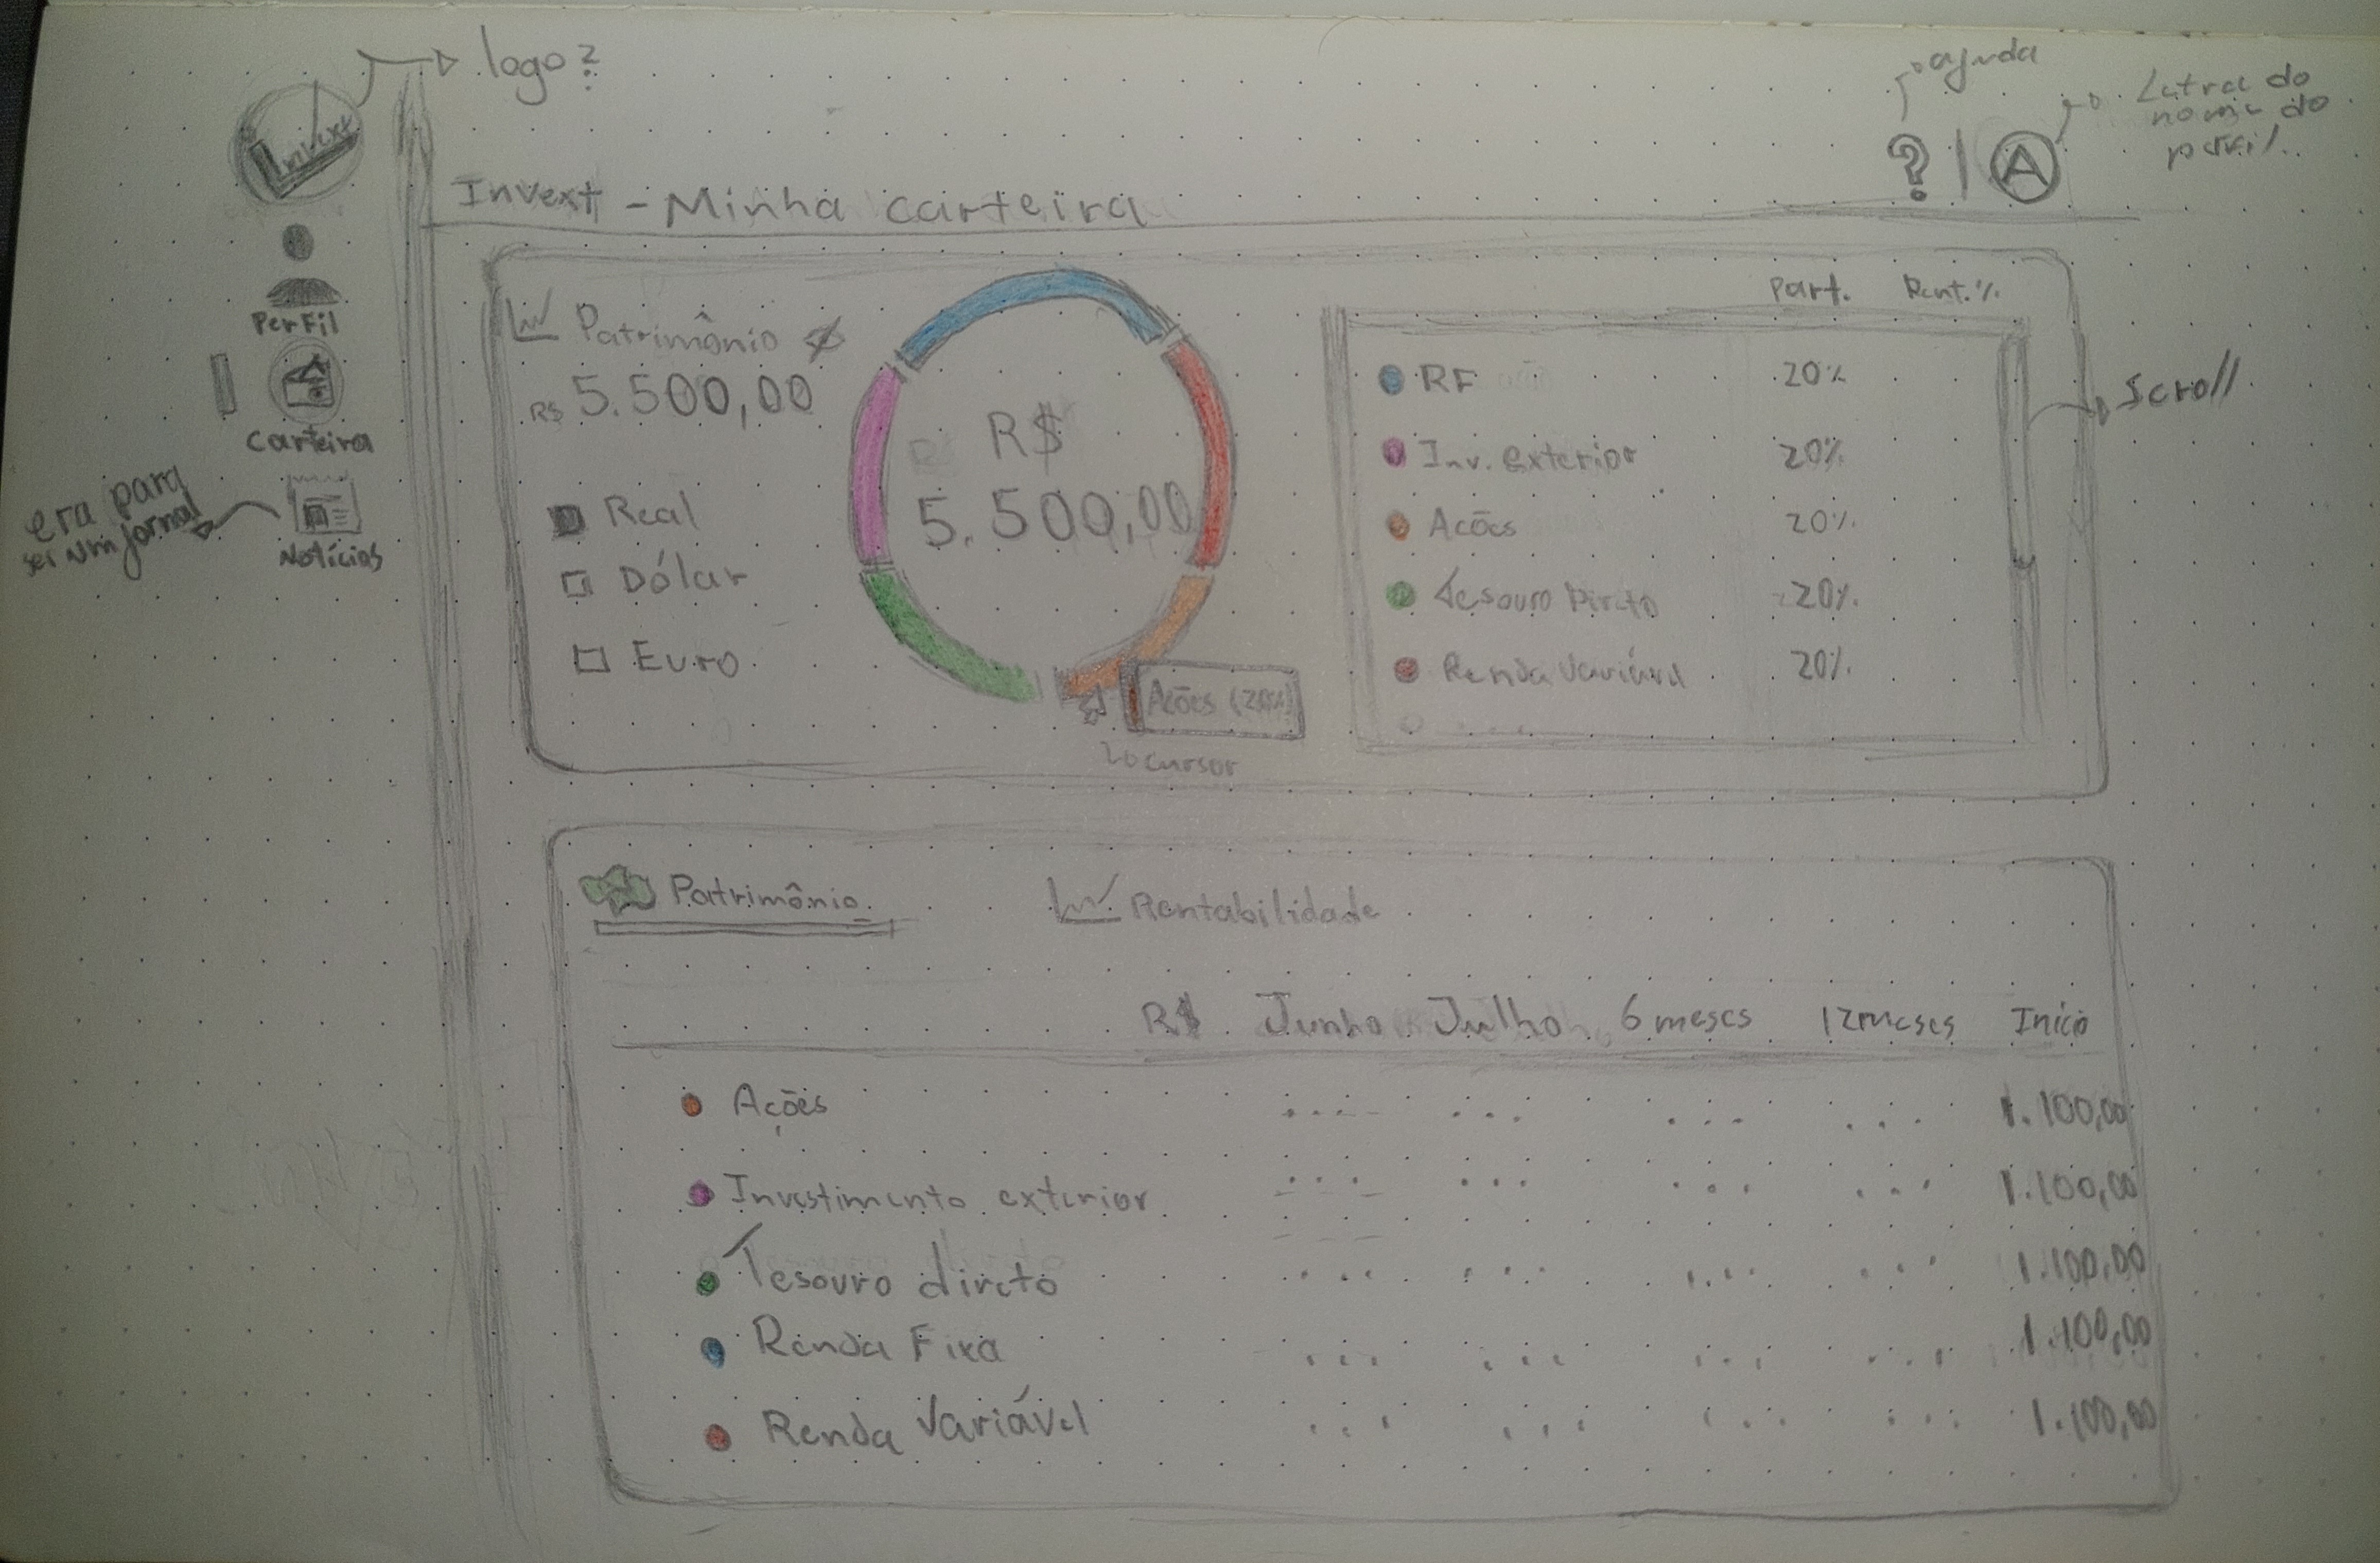 logo?
ajuda
Letra do
nome do
perfil.
Invext
? | A
Invext - Minha carteira
Perfil
Carteira
era para
ser um jornal
Notícias
Patrimônio
R$ 5.500,00
Real
Dólar
Euro
R$
5.500,00
Ações (20%)
cursor
Part. Rent. %
RF 20%
Inv. Exterior 20%
Acões 20%
Tesouro Direto 20%
Renda Variável 20%
Scroll
Patrimônio Rentabilidade
R$ Junho Julho 6 meses 12 meses Início
Ações ... ... ... ... 1.100,00
Investimento exterior ... ... ... ... 1.100,00
Tesouro direto ... ... ... ... 1.100,00
Renda Fixa ... ... ... ... 1.100,00
Renda Variável ... ... ... ... 1.100,00